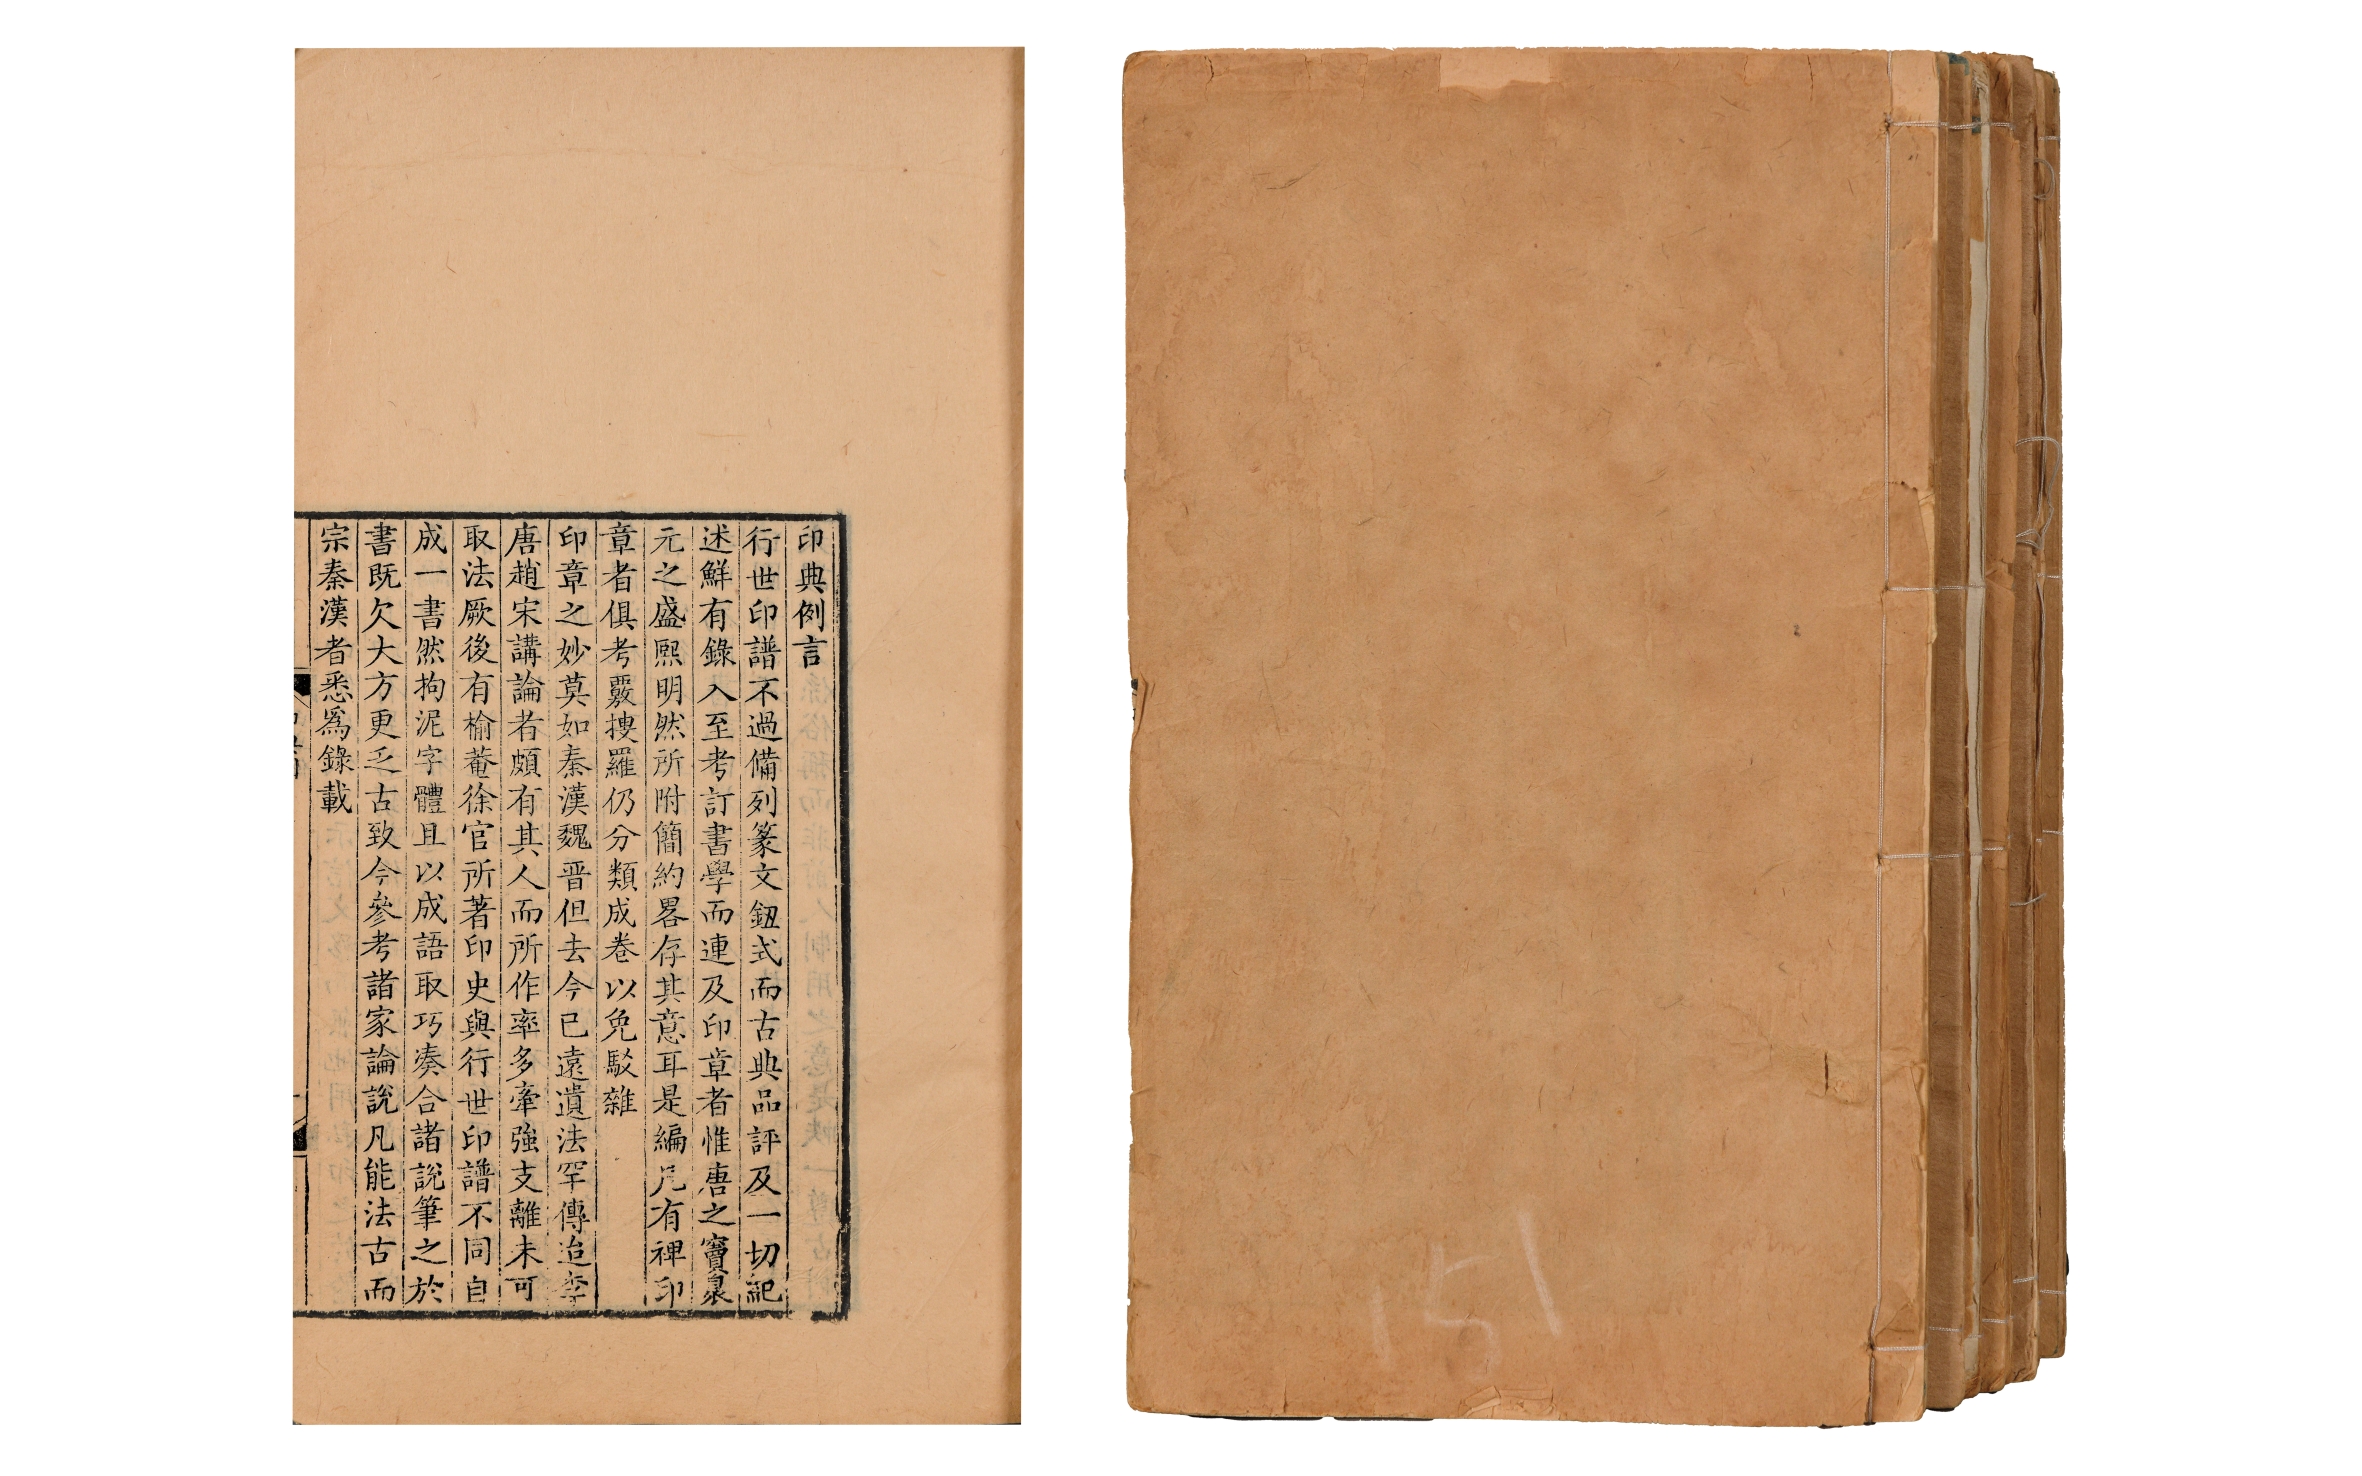 印典例言
行世印譜不過備列篆文鈕式而古典品評及一切紀
述鮮有錄入至考訂書學而連及印章者惟唐之竇臮
元之盛熙明然所附簡約畧存其意耳是編凡有裨印
章者俱考覈搜羅仍分類成卷以免駁雜
印章之妙莫如秦漢魏晉但去今已遠遺法罕傳迨李
唐趙宋講論者頗有其人而所作率多牽強支離未可
取法厥後有榆菴徐官所著印史與行世印譜不同自
成一書然拘泥字體且以成語取巧湊合諸說筆之於
書既欠大方更乏古致今參考諸家論說凡能法古而
宗秦漢者悉爲錄載
151